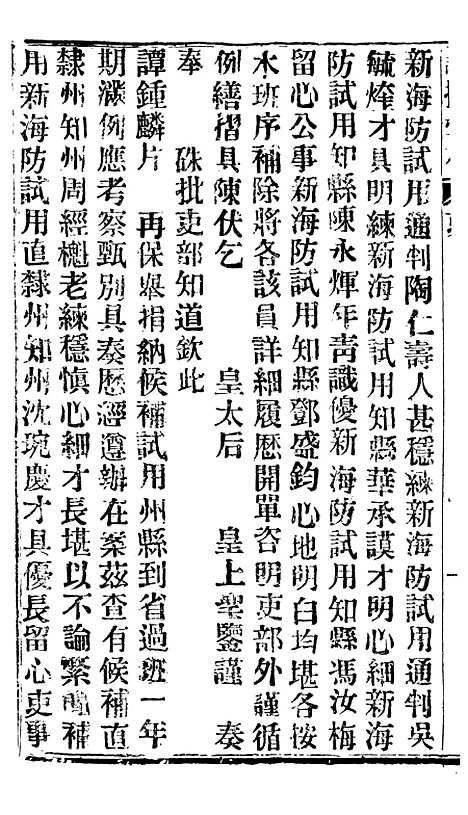 新海防試用通判陶仁壽人甚穩練新海防試用通判吳
毓煃才具明練新海防試用知縣華承謨才明心細新海
防試用知縣陳永煇年青識優新海防試用知縣馮汝梅
留心公事新海防試用知縣鄧盛鈞心地明白均堪各按
本班序補除將各該員詳細履歷開單咨明吏部外謹循
例繕摺具陳伏乞 皇太后 皇上聖鑒謹 奏
奉 硃批吏部知道欽此
譚鍾麟片 再保舉捐納候補試用州縣到省過班一年
期滿例應考察甄別具奏歷經遵辦在案茲查有候補直
隸州知州周經 老練穩慎心細才長堪以不論繁簡補
用新海防試用直隸州知州沈琬慶才具優長留心吏事